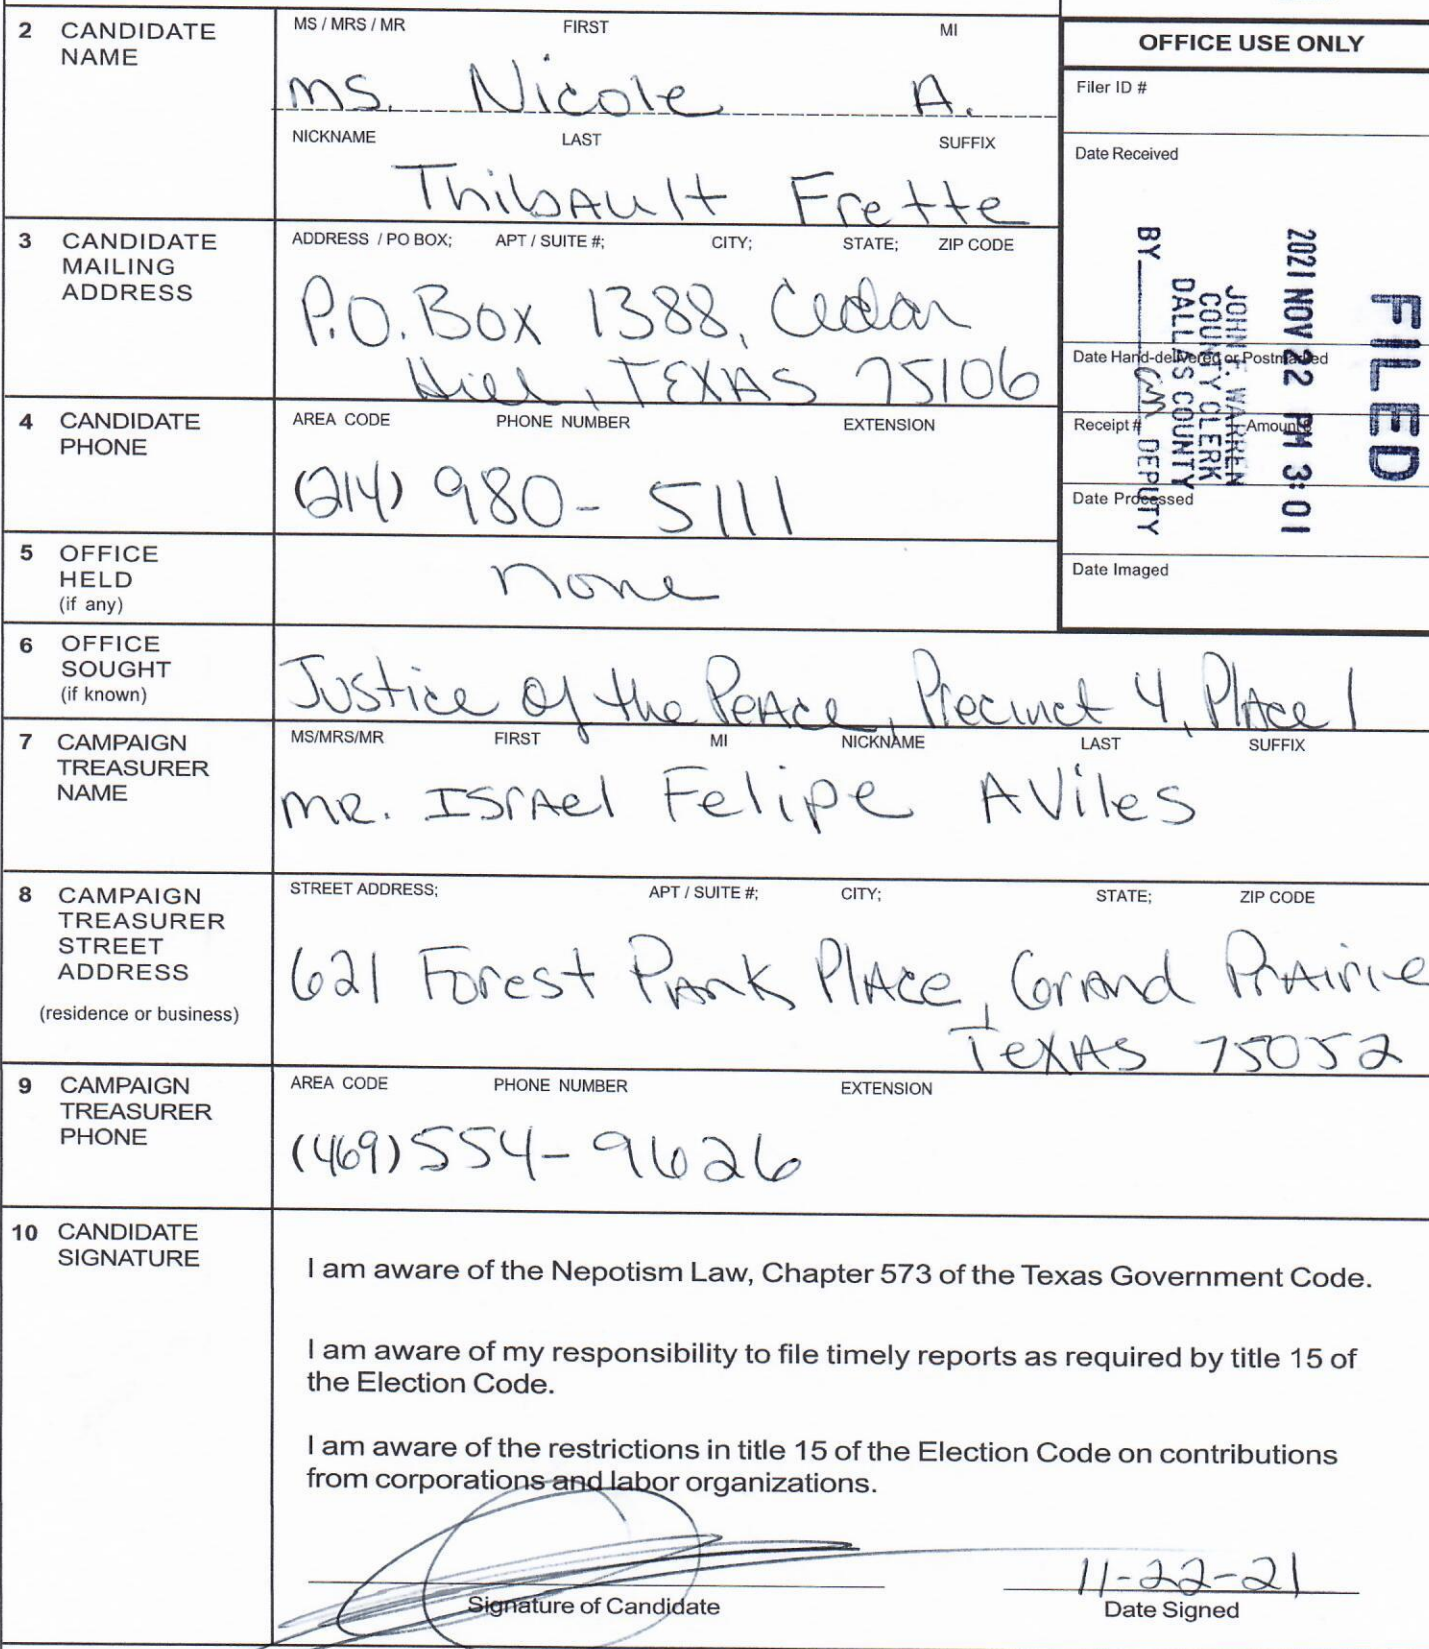 2 CANDIDATE NAME
MS / MRS / MR FIRST MI
Ms. Nicole A.
NICKNAME LAST SUFFIX
Thibault Frette
OFFICE USE ONLY
Filer ID #
Date Received
Date Hand-delivered or Postmarked
Receipt # Amount $
Date Processed
Date Imaged
FILED
2021 NOV 22 PM 3:01
JOHN F. WARREN
COUNTY CLERK
DALLAS COUNTY
BY DEPUTY
3 CANDIDATE MAILING ADDRESS
ADDRESS / PO BOX; APT / SUITE #; CITY; STATE; ZIP CODE
P.O. Box 1388, Cedar
Hill, TEXAS 75106
4 CANDIDATE PHONE
AREA CODE PHONE NUMBER EXTENSION
(214) 980-5111
5 OFFICE HELD (if any)
none
6 OFFICE SOUGHT (if known)
Justice of the Peace, Precinct 4, Place 1
7 CAMPAIGN TREASURER NAME
MS/MRS/MR FIRST MI NICKNAME LAST SUFFIX
MR. Israel Felipe Aviles
8 CAMPAIGN TREASURER STREET ADDRESS
(residence or business)
STREET ADDRESS; APT / SUITE #; CITY; STATE; ZIP CODE
621 Forest Park Place, Grand Prairie
Texas 75052
9 CAMPAIGN TREASURER PHONE
AREA CODE PHONE NUMBER EXTENSION
(469) 554-9626
10 CANDIDATE SIGNATURE
I am aware of the Nepotism Law, Chapter 573 of the Texas Government Code.
I am aware of my responsibility to file timely reports as required by title 15 of
the Election Code.
I am aware of the restrictions in title 15 of the Election Code on contributions
from corporations and labor organizations.
11-22-21
Signature of Candidate Date Signed